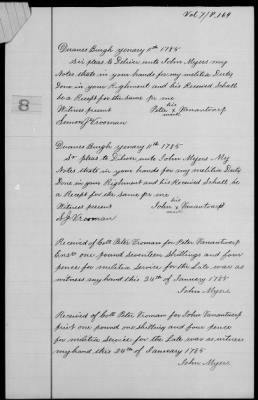 Vol. 7/P. 169
8
Duanes Burgh yenary 11th 1785
Sir pleas to Deliver unto John Myers my
Notes thats in your hands for my melitia Duty
Done in your Righment and his Receved Shall
be a Recept for the same pr me
his
Witness present Peter x Vanantwerp
mark
Simon J Vrooman
Duanes Burgh yenary 11th 1785
Sr pleas to Deliver unto John Myers My
Notes thats in your hands for my melitia Duty
Done in your Righment and his Receved Shall be
a Recept for the same pr me
his
Witness present John x Vanantwerp
mark
S J Vrooman
Received of Collo Peter Vroman for Peter Vanantwerp
one pound seventeen Shillings and four
pence for melitia Service for the Late war as
witness my hand this 24th of January 1785
John Myers
Received of Collo Peter Vroman for John Vanantwerp
one pound one shilling and four pence
for melitia Service for the Late war as witness
my hand this 24th of January 1785
John Myers